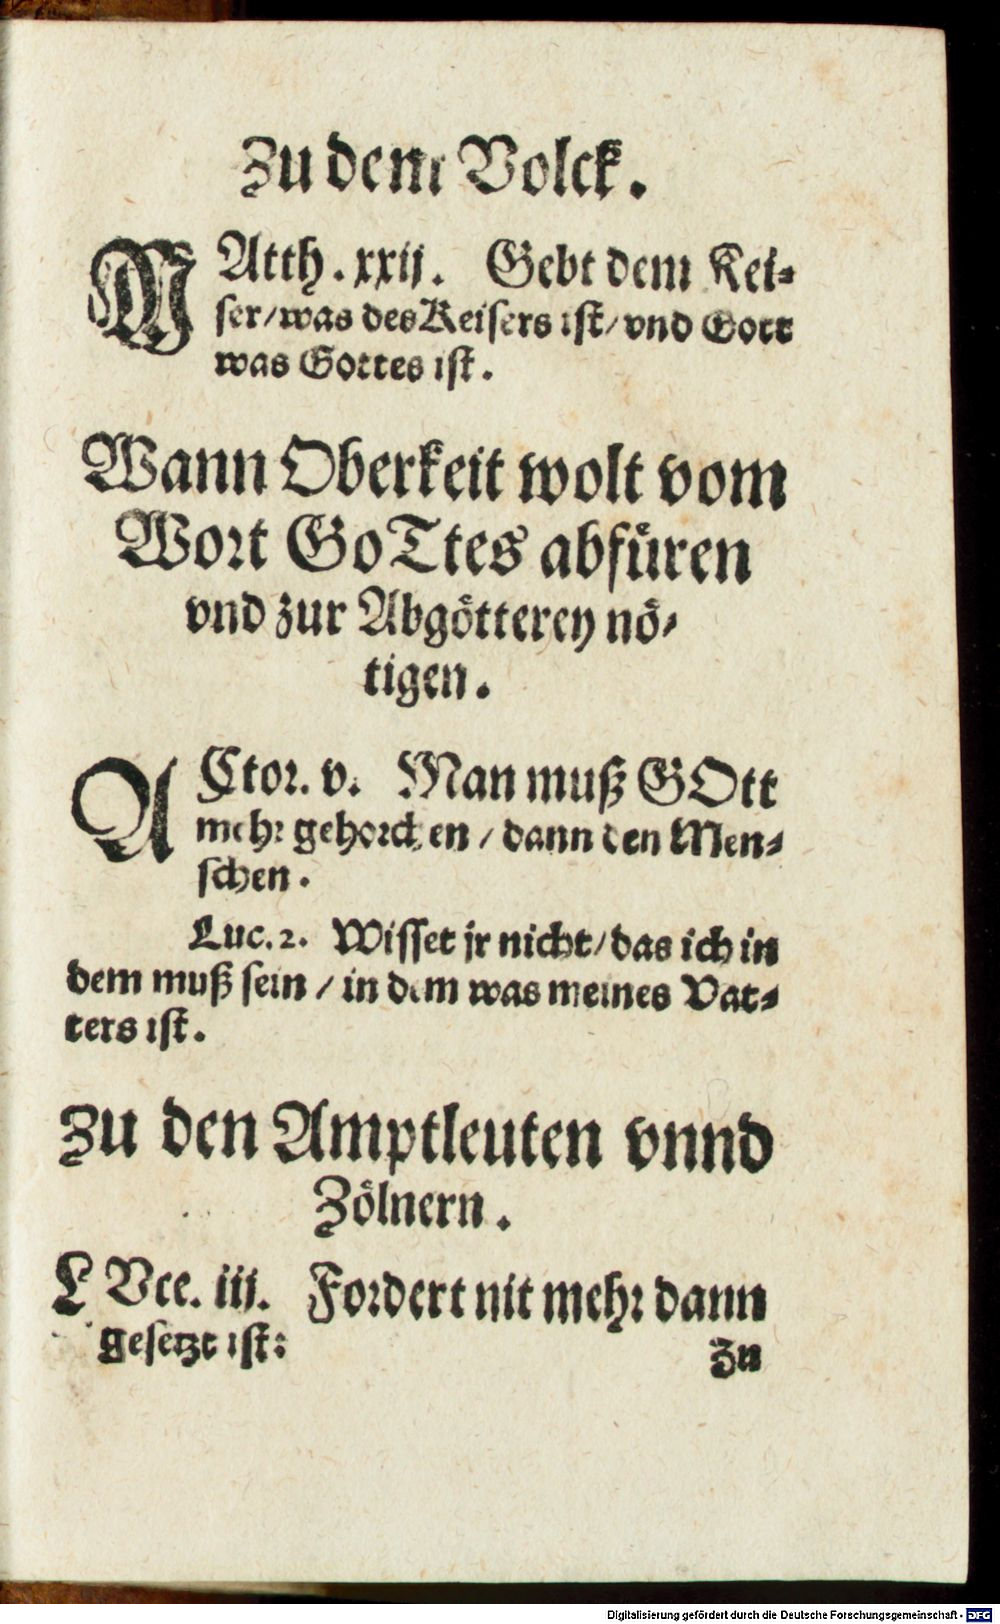 Zu dem Volck.
MAtth. xxij. Gebt dem Kei-
ser/was des Keisers ist/vnd Gott
was Gottes ist.
Wann Oberkeit wolt vom
Wort GoTtes abfüren
vnd zur Abgötterey nö-
tigen.
ACtor. v. Man muß GOtt
mehr gehorchen/dann den Men-
schen.
Luc. 2. Wisset jr nicht/das ich in
dem muß sein/in dem was meines Vat-
ters ist.
Zu den Amptleuten vnnd
Zölnern.
LVce. iij. Fordert nit mehr dann
gesetzt ist:
Zu
Digitalisierung gefördert durch die Deutsche Forschungsgemeinschaft - DFG